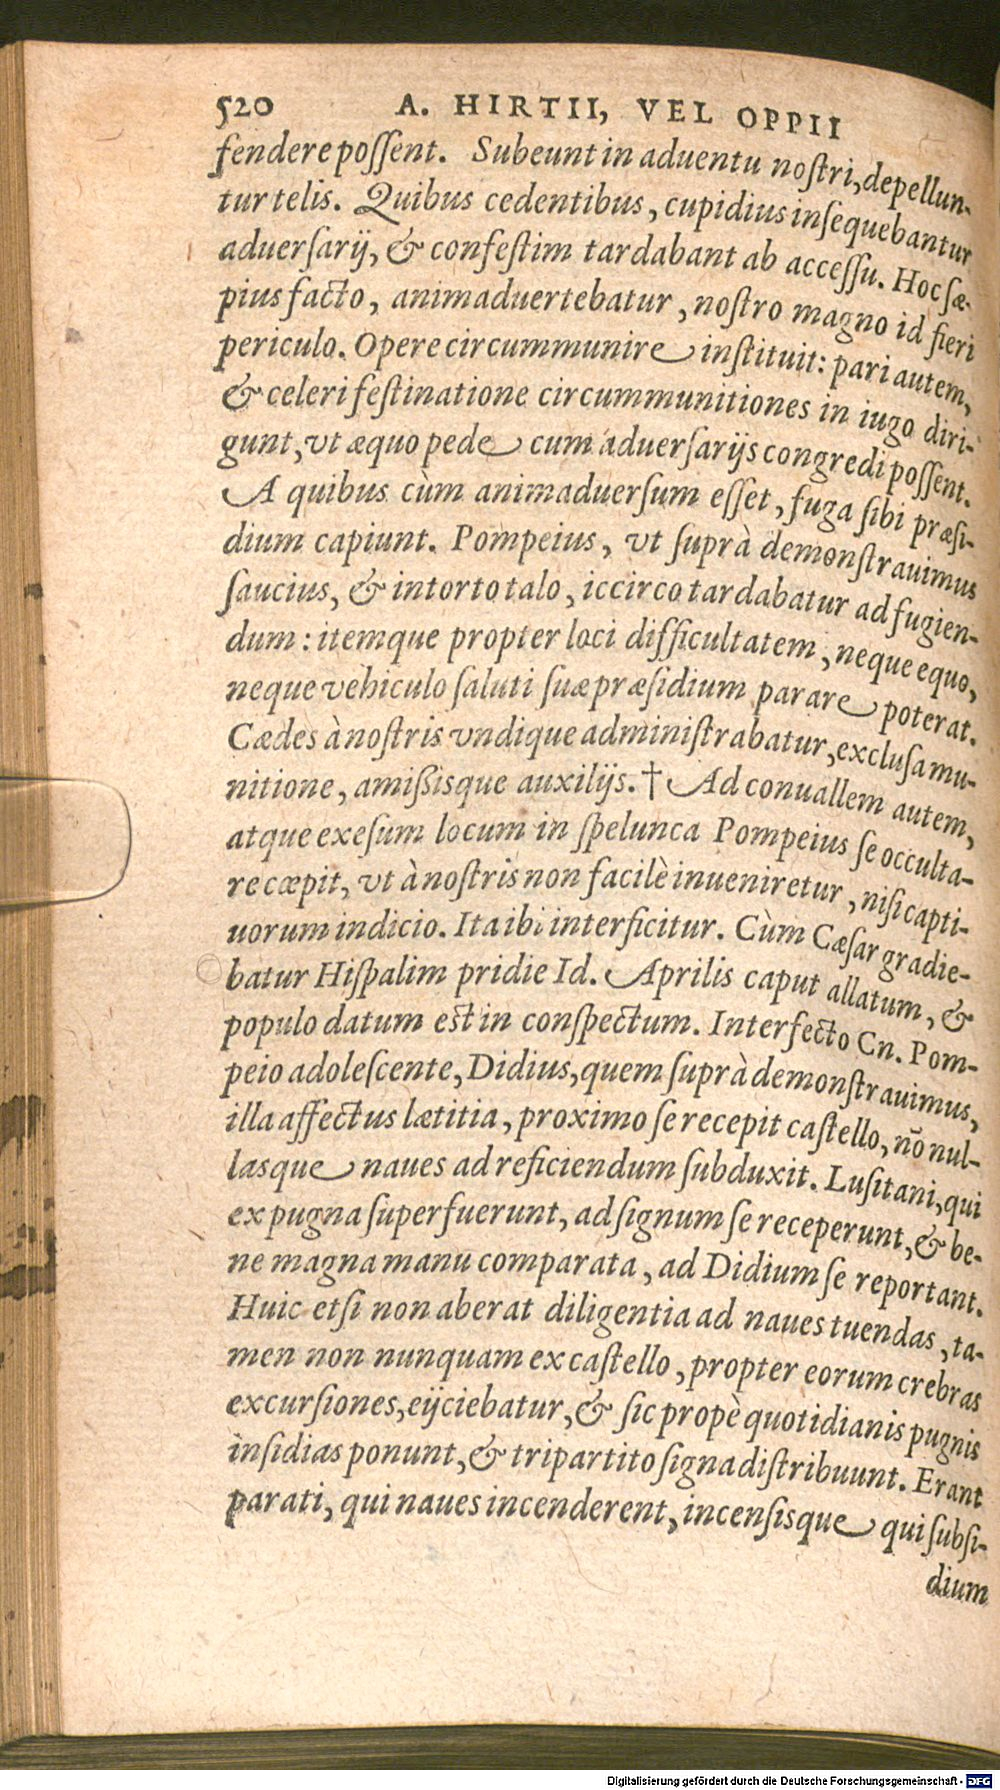 520 A. HIRTII, VEL OPPII
fendere poſſent. Subeunt in aduentu noſtri, depellun-
tur telis. Quibus cedentibus, cupidius inſequebantur
aduerſarij, & confeſtim tardabant ab acceſſu. Hoc ſæ-
pius facto, animaduertebatur, noſtro magno id fieri
periculo. Opere circummunire inſtituit: pari autem,
& celeri feſtinatione circummunitiones in iugo diri-
gunt, vt æquo pede cum aduerſarijs congredi poſſent.
A quibus cùm animaduerſum eſſet, fuga ſibi præſi-
dium capiunt. Pompeius, vt ſuprà demonſtrauimus
ſaucius, & intorto talo, iccirco tardabatur ad fugien-
dum: itemque propter loci difficultatem, neque equo,
neque vehiculo ſaluti ſuæ præſidium parare poterat.
Cædes à noſtris vndique adminiſtrabatur, excluſa mu-
nitione, amißisque auxilijs. † Ad conuallem autem,
atque exeſum locum in ſpelunca Pompeius ſe occulta-
re cœpit, vt à noſtris non facilè inueniretur, niſi capti-
uorum indicio. Ita ibi interficitur. Cùm Cæſar gradie-
batur Hiſpalim pridie Id. Aprilis caput allatum, &
populo datum est in conſpectum. Interfecto Cn. Pom-
peio adoleſcente, Didius, quem ſuprà demonſtrauimus,
illa affectus lætitia, proximo ſe recepit caſtello, nō nul-
lasque naues ad reficiendum ſubduxit. Luſitani, qui
ex pugna ſuperfuerunt, ad ſignum ſe receperunt, & be-
ne magna manu comparata, ad Didium ſe reportant.
Huic etſi non aberat diligentia ad naues tuendas, ta-
men non nunquam ex caſtello, propter eorum crebras
excurſiones, eijciebatur, & ſic propè quotidianis pugnis
inſidias ponunt, & tripartito ſigna diſtribuunt. Erant
parati, qui naues incenderent, incenſisque qui ſubſi-
dium
Digitalisierung gefördert durch die Deutsche Forschungsgemeinschaft - DFG